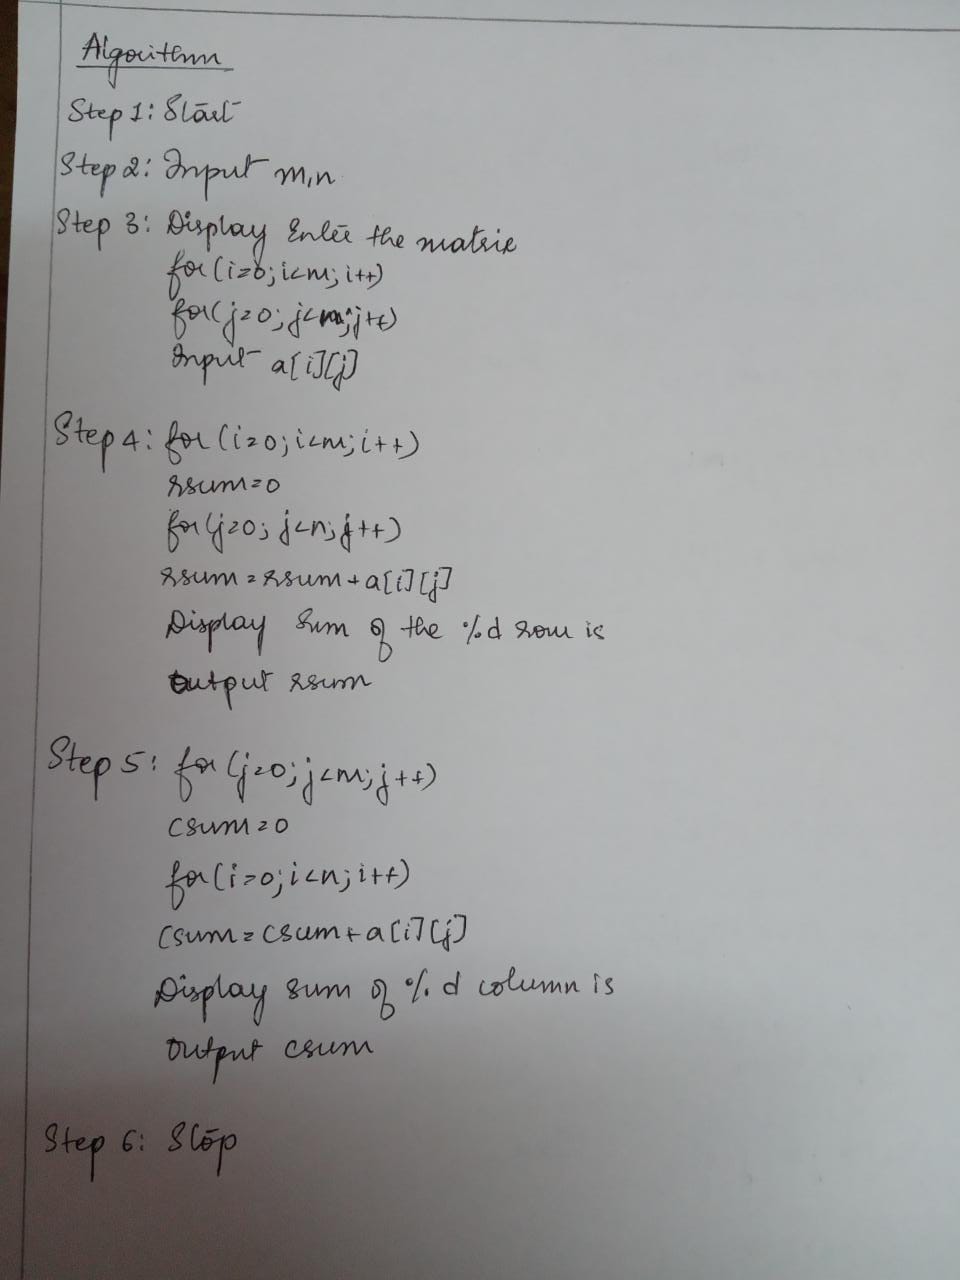 Algorithm
Step 1: Start
Step 2: Input m,n
Step 3: Display Enter the matrix
for(i=0;i<m;i++)
for(j=0;j<n;j++)
Input a[i][j]
Step 4: for(i=0;i<m;i++)
rsum=0
for(j=0;j<n;j++)
rsum=rsum+a[i][j]
Display Sum of the %d row is
Output rsum
Step 5: for(j=0;j<m;j++)
csum=0
for(i=0;i<n;i++)
csum=csum+a[i][j]
Display sum of %d column is
Output csum
Step 6: Stop